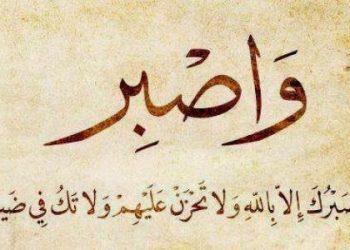 وَاصْبِر
صَبْرُكَ إِلاَّ بِاللّهِ وَلاَ تَحْزَنْ عَلَيْهِمْ وَلاَ تَكُ فِي